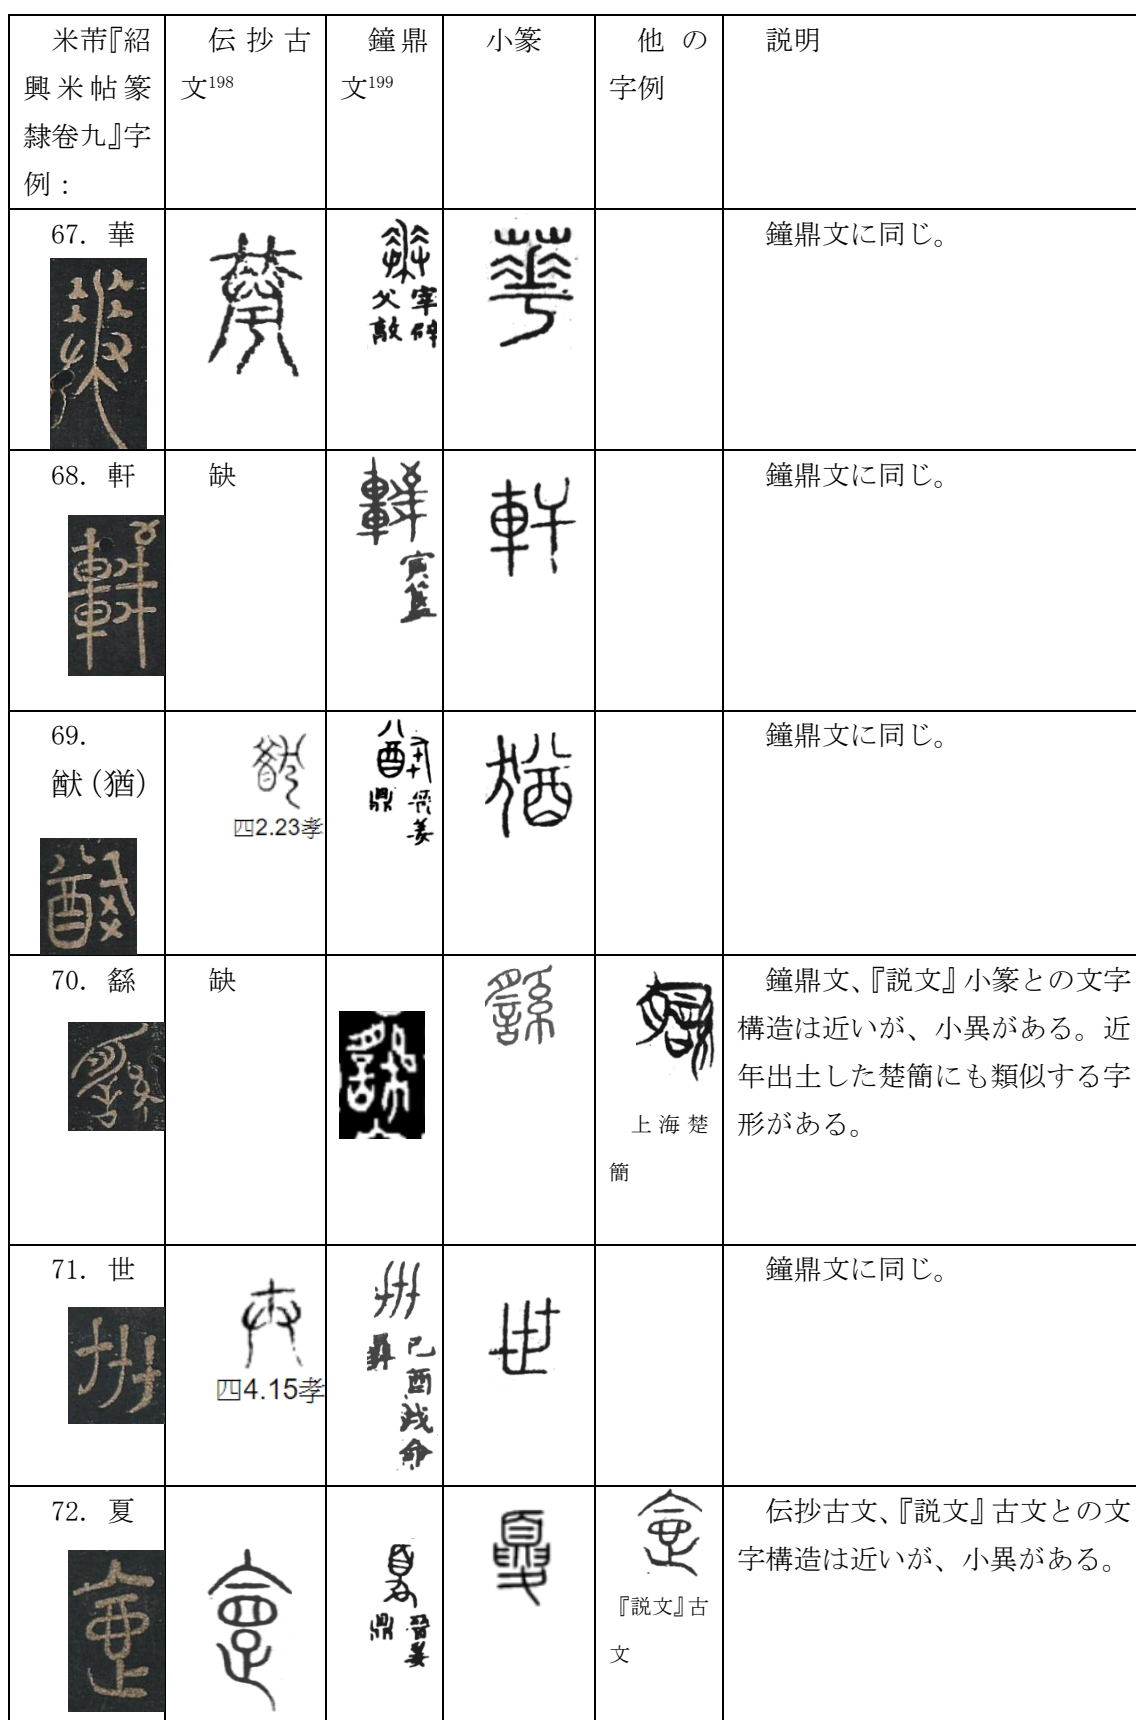 米芾『紹興米帖篆隸卷九』字例：
伝抄古文198
鐘鼎文199
小篆
他の字例
説明
67. 華
父 宰
敦 辟
鐘鼎文に同じ。
68. 軒
缺
寅簋
鐘鼎文に同じ。
69.
猷(猶)
四2.23孝
鼎 晉姜
鐘鼎文に同じ。
70. 繇
缺
上海楚簡
鐘鼎文、『説文』小篆との文字
構造は近いが、小異がある。近
年出土した楚簡にも類似する字
形がある。
71. 世
四4.15孝
彝 己酉戌命
鐘鼎文に同じ。
72. 夏
鼎 晉姜
『説文』古文
伝抄古文、『説文』古文との文
字構造は近いが、小異がある。